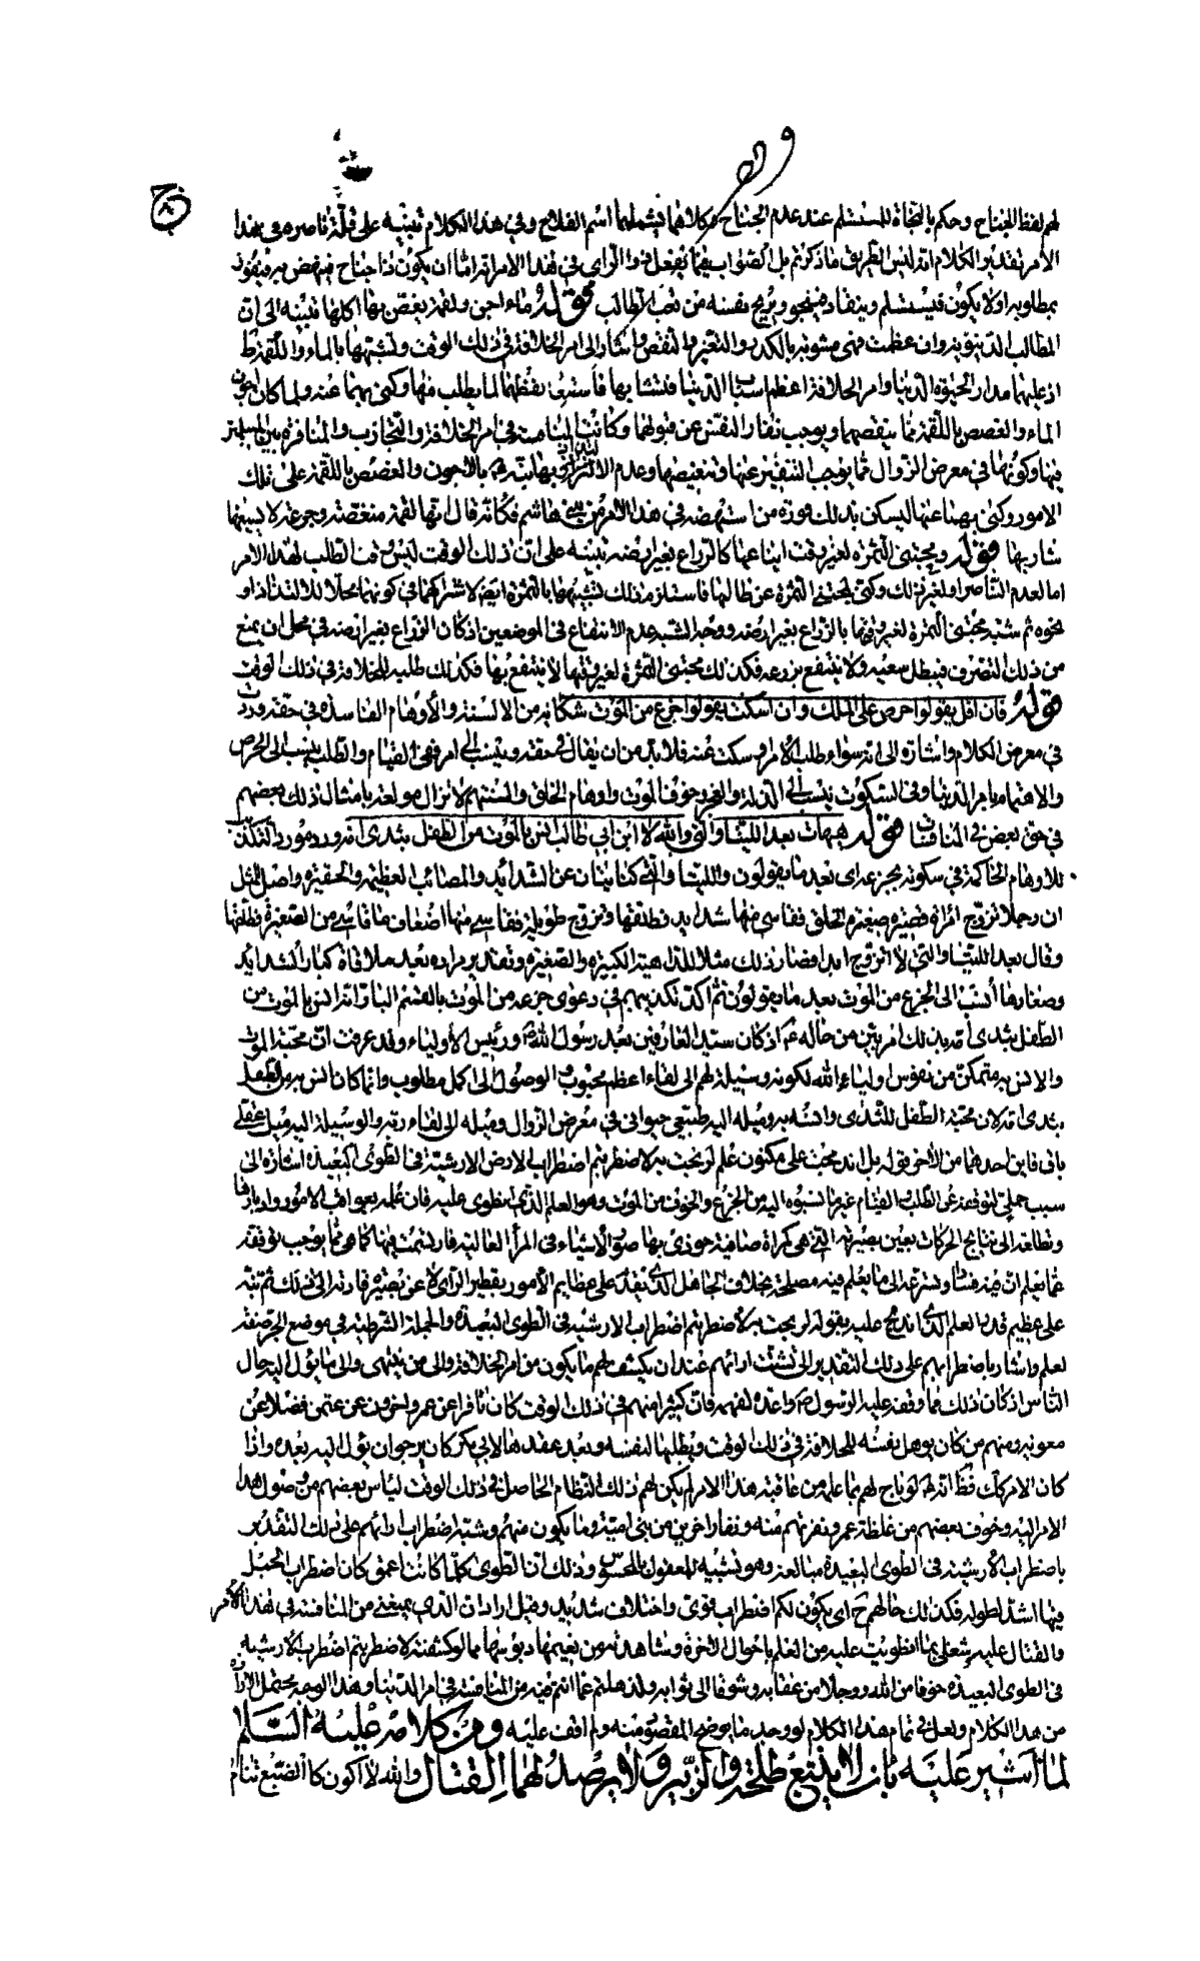 لهم لفظ الجناح وحكم بالنجاة للمستسلم عند عدم الجناح وكلاهما يشملهما اسم الفلاح وفي هذا الكلام تنبيه على قلة ناصره في هذا
الأمر تقدير الكلام انه ليس الطريق ما ذكرتم بل الصواب فيما يفعل ذو الرأى في هذا الامر انه اما ان يكون ذا جناح فينهض به فيفوز
بمطلوبه او لا يكون فيستسلم وينقاد فينجو ويريح نفسه من تعب الطالب قوله ماء اجن ولقمة يغص بها اكلها تنبيه الى ان
المطالب الدنيوية وان عظمت فهى مشوبة بالكدر والتغير والنقص واشار الى امر الخلافة في ذلك الوقت وتشبيهها بالماء واللقمة
اذ عليهما مدار الحيوة الدنيا وامر الخلافة اعظم اسباب الدنيا فتشابها فاستعار لفظهما لما يطلب منها وكنى بهما عنه ولما كان اجون
الماء والغصص باللقمة مما ينقصهما ويوجب نفار النفس عن قبولهما وكانت المنافسة في امر الخلافة والتجاذب والمنافرة بين المسلمين
فيها وكونها في معرض الزوال مما يوجب التنفير عنها وتنغيصها وعدم الالتذاذ بها نبه بالاجون والغصص باللقمة على تلك
الامور وكنى بهما عنها ليسكن بذلك فورة من استنهضه في هذا الامر من بني هاشم فكأنه قال انها لقمة منغصة وجرعة لا يسيغها
شاربها قوله ومجتنى الثمرة لغير وقت ايناعها كالزراع بغير ارضه تنبيه على ان ذلك الوقت ليس وقت الطلب لهذا الامر
اما لعدم الناصر او لغير ذلك وكنى بمجتنى الثمرة عن طالبها فاستلزم ذلك تشبيهها بالثمرة ايضا لاشتراكهما في كونهما محلا للالتذاذ او
نحوه ثم شبه مجتنى الثمرة لغير وقتها بالزراع بغير ارضه ووجه الشبه عدم الانتفاع في الموضعين اذ كان الزراع بغير ارضه في محل ان يمنع
من ذلك التصرف فيبطل سعيه ولا ينتفع بزرعه فكذلك مجتنى الثمرة لغير وقتها لا ينتفع بها فكذلك طلبه للخلافة في ذلك الوقت
قوله فان اقل يقولوا حرص على الملك وان اسكت يقولوا جزع من الموت شكاية من الالسنة والأوهام الفاسدة في حقه وردت
في معرض الكلام واشارة الى انه سواء طلب الأمر او سكت عنه فلابد من ان يقال في حقه وينسب الى امر ففي القيام والطلب ينسب الى الحرص
والاهتمام بامر الدنيا وفي السكوت ينسب الى الذلة والعجز وخوف الموت واوهام الخلق والسنتهم لا تزال مولعة بامثال ذلك بعضهم
في حق بعض في المنافسات قوله هيهات بعد اللتيا والتي والله لابن ابي طالب انس بالموت من الطفل بثدى امه ورد مورد التكذيب
للاوهام الحاكمة في سكوته بجزعه اى بعد ما يقولون واللتيا والتي كنايتان عن الشدائد والمصائب العظيمة والحقيرة واصل المثل
ان رجلا تزوج امراة قصيرة صغيرة الخلق فقاسى منها شدايد فطلقها وتزوج طويلة فقاسى منها اضعاف ما قاسى من الصغيرة فطلقها
وقال بعد اللتيا والتي لا اتزوج ابدا فصار ذلك مثلا للداهية الكبيرة والصغيرة وتقدير مراده بعد ملاقاة كبار الشدايد
وصغارها أنسب الى الجزع من الموت بعد ما يقولون ثم اكد تكذيبهم في دعوى جزعه من الموت بالقسم البار انه انس بالموت من
الطفل بثدى امه وذلك امر بين من حاله ع اذ كان سيد العارفين بعد رسول الله ورئيس الأولياء وقد عرفت ان محبة الموت
والانس به متمكن من نفوس اولياء الله لكونه وسيلة لهم الى لقاء اعظم محبوب والوصول الى اكمل مطلوب وانما كان انس به من الطفل
بثدى امه لان محبة الطفل للثدى وانسه به وميله اليه طبيعي حيواني في معرض الزوال وميله الى لقاء ربه والوسيلة اليه ميل عقلى
باق فاين احدهما من الآخر قوله بل اندمجت على مكنون علم لو بحت به لاضطربتم اضطراب الارشية في الطوى البعيدة اشارة الى
سبب جملي لتوقفه عن الطلب والقيام غير ما نسبوه اليه من الجزع والخوف من الموت وهو العلم الذى انطوى عليه فان علمه بعواقب الامور وادبارها
وتطلعه الى نتايج الحركات بعين بصيرته التي هى كمرآة صافية حوذى بها صور الأشياء في المرآة العالية فارتسمت فيها كما هى مما يوجب توقفه
عما يعلم ان فيه فسادا وتسرعه الى ما يعلم فيه مصلحة بخلاف الجاهل الذى يقدم على عظايم الأمور بقصير الرأى لا عن بصيرة قادته الى ذلك ثم نبه
على عظيم قدر العلم الذى اندمج عليه بقوله لو بحت به لاضطربتم اضطراب الارشية في الطوى البعيدة والجملة الشرطية في موضع الجر صفة
لعلم واشار باضطرابهم على ذلك التقدير الى تشتت ارائهم عند ان يكشف لهم ما يكون من امر الخلافة والى من ينتهى والى ما يؤل اليه حال
الناس اذ كان ذلك مما وقفه عليه الرسول ص واعده لفهمه فان كثيرا منهم في ذلك الوقت كان نافرا عن عمر واخرون عن عثمن فضلا عن
معوية ومنهم من كان يؤهل نفسه للخلافة في ذلك الوقت ويطلبها لنفسه وبعد عقدها لابي بكر كان يرجو ان يؤل اليه بعده واذا
كان الامر كذلك فظاهر انه لو باح لهم بما علمه من عاقبة هذا الامر لم يكن لهم ذلك النظام الحاصل في ذلك الوقت لياس بعضهم من وصول هذا
الامر اليه وخوف بعضهم من غلظة عمر ونفرتهم منه ونفار اخرين من بني امية وما يكون منهم وشبه اضطراب ارائهم على ذلك التقدير
باضطراب الأرشية في الطوى البعيدة مبالغة وهو تشبيه للمعقول بالمحسوس وذلك ان الطوى كلما كانت اعمق كان اضطراب الحبل
فيها اشد لطوله فكذلك حالهم ح اى يكون لكم اضطراب قوى واختلاف شديد وقيل اراد ان الذى يمنعني من المنافسة في هذا الأمر
والقتال عليه شغلى بما انطويت عليه من العلم باحوال الآخرة وشاهدته من نعيمها وبؤسها مما لو كشفته لاضطربتم اضطراب الأرشية
في الطوى البعيدة خوفا من الله ووجلا من عقابه وشوقا الى ثوابه ولذهلتم عما انتم فيه من المنافسة في امر الدنيا وهذا الوجه محتمل الارادة
من هذا الكلام ولعل في تمام هذا الكلام لو وجد ما يوضح المقصود منه ولم اقف عليه ومن كلام له عليه السلام
لما اشير عليه بان لا يتبع طلحة والزبير ولا يرصد لهما القتال والله لا اكون كالضبع تنام